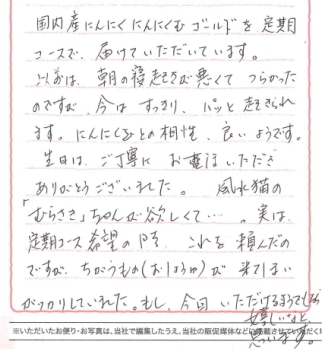 国内産にんにくにんにくむゴールドを定期
コースで、届けていただいています。
以前は、朝の寝起きが悪くてつらかった
のですが、今はすっきり、パッと起きられ
ます。にんにくむとの相性、良いようです。
先日は、ご丁寧にお電話いただき
ありがとうございました。風水猫の
「むらさき」ちゃんが欲しくて…。実は、
定期コース希望の時、これを頼んだの
ですが、ちがうもの(おしょうゆ)が来てしまい
がっかりしていました。もし、今回いただけるようでしたら
嬉しいなと
思います。
※いただいたお便り・お写真は、当社で編集したうえ、当社の販促媒体などに掲載させていただく